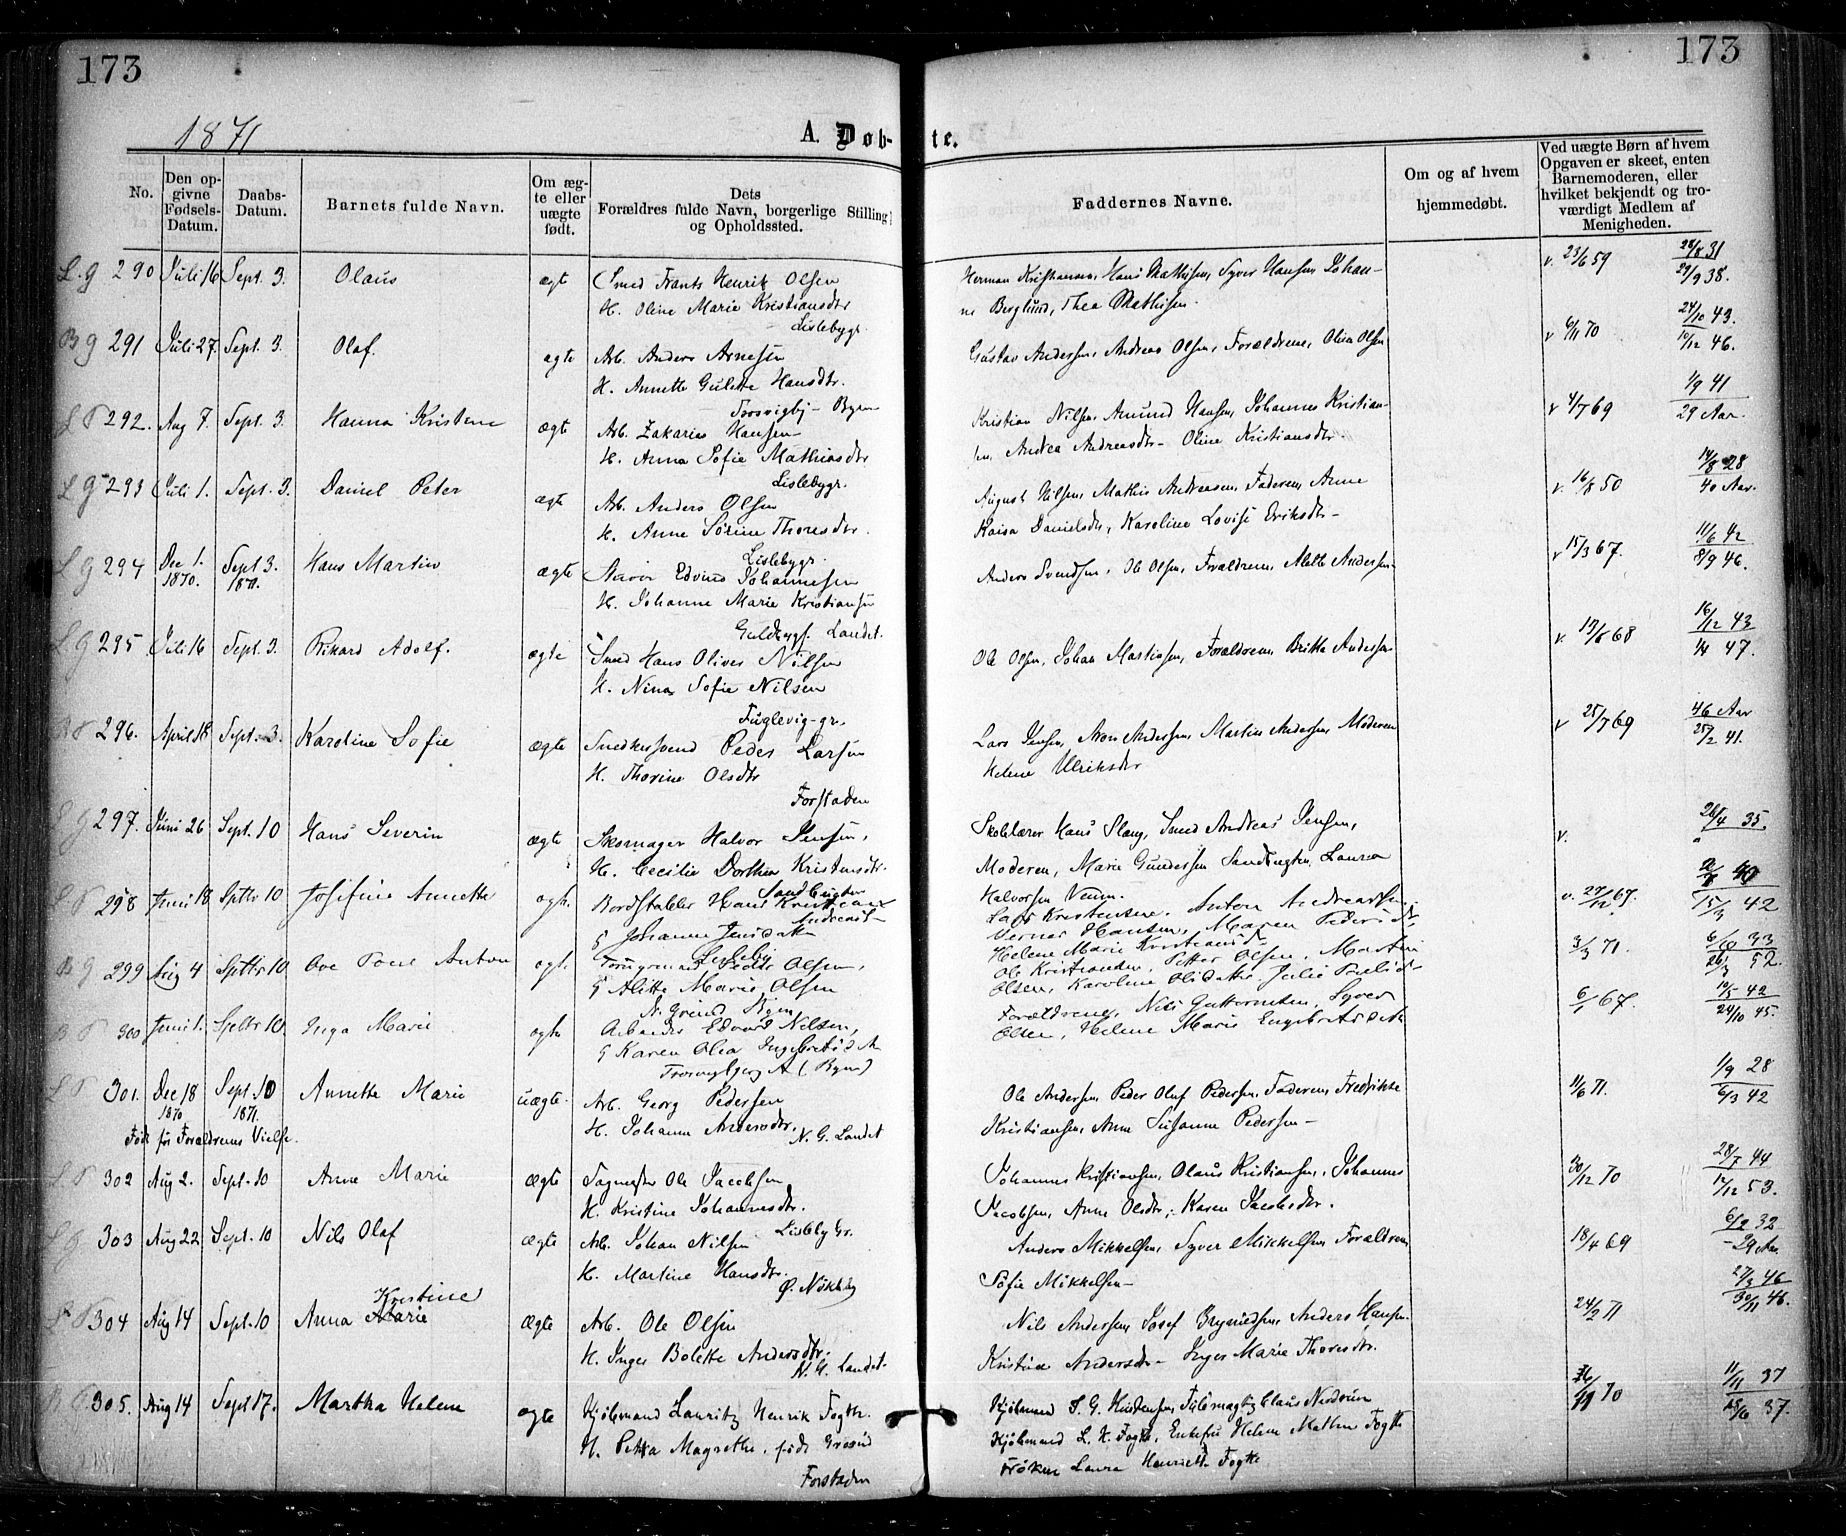 173
173
1871
A. Døb-
te.
No.
Den op-
givne
Fødsels-
Datum.
Daabs-
Datum.
Barnets fulde Navn.
Om æg-
te eller
uægte
født.
Dets
Forældres fulde Navn, borgerlige Stilling
og Opholdssted.
Faddernes Navne.
Om og af hvem
hjemmedøbt.
Ved uægte Børn af hvem
Opgaven er skeet, enten
Barnemoderen, eller
hvilket bekjendt og tro-
værdigt Medlem af
Menigheden.
L. g 290 Juli 16 Sept. 3. Olaus ægte Smed Frants Henrik Olsen
H. Oline Marie Kristiansdtr
Lislebygr.
Herman Kristiansen, Hans Mathisen, Syver Hansen, Johan-
ne Berglund, Thea Mathisen.
v. 23/6 59 28/8 31
29/9 38.
B g 291 Juli 27. Sept. 3. Olaf. ægte Arb. Anders Arnesen
H. Annette Gulette Hansdtr.
Trosvigbj- Byen
Gustav Andersen, Andreas Olsen, Forældrene, Olina Olsen
v 6/11 70 24/10 43.
14/12 46.
292. Aug 7. Sept. 3. Hanna Kristine ægte Arb. Zakarias Hansen
H. Anna Sofie Mathiasdtr
Lislebygr.
Kristian Nilsen, Amund Hansen, Johannes Kristian-
sen, Andrea Andreasdtr- Oline Kristiansdtr.
v 4/7 69 1/9 41
29 Aar.
L g 293 Juli 1. Sept. 3. Daniel Peter ægte Arb. Anders Olsen
H. Anne Sörine Thoresdtr.
Lislebygr.
August Nilsen, Mathis Andreasen, Faderen, Anne
Kaisa Danielsdtr, Karoline Lovise Eriksdtr-
v. 16/8 50 14/8 28
40 Aar.
L g 294 Dec 1. Sept 3. Hans Martin ægte Edvind Johannesen
1870. 1871.
H. Johanne Marie Kristiansen
Guldbygf. Landet.
Anders Svendsen, Ole Olsen, Forældrene, Andersen.
v 15/3 67. 11/6 42
8/9 46.
L. g 295. Juli 16 Sept. 3. Rikard Adolf. ægte Smed Hans Oliver Nilsen
H. Nina Sofie Nilsen
Fuglevig-gr.
Ole Olsen, Johan Martinsen, Forældrene, Britta Andersen
v. 68 16/12 43
47.
296. April 18 Sept. 3. Karoline Sofie ægte Snedkersvend Peder Larsen
H. Thorine Olsdtr
Forstaden
Lars Jensen, Aron Andersen, Martin Andersen, Moderen
Helene Ulriksdtr
v 25/7 69 46 Aar
25/2 41.
g 297. Juni 26 Sept. 10 Hans Severin ægte Skomager Halvor Jensen,
H. Cecilie Dorthea Kristensdtr.
Sandbugten
Skolelærer Hans Slang, Smed Andreas Jensen,
Moderen, Marie Gundersen Sandbugten, Laura
Halvorsen Veum.
v. 26/4 35.
298 Juni 18 Septbr 10 Josefine Annette ægte. Bordstabler Hans Kristian
Andreas-
Johanne Jensdatter
Lisleby
Lars Kristensen, Anton Andreassen,
Verner Hansen, Maren Pedersdt
Helene Marie Kristiansdt
v. 27/12 67. 40
15/3 42
B g 299 Aug 4 Septbr 10 Ove Toni Anton ægte. Peder Olsen,
Alette Marie Olsen
N. Grend Byen
Ole Kristiansen, Petter Olsen, Martin
Olsen, Karoline Olsdatter, Julie
3/3 71. 6/10 33
52.
B 300 Juni 1. Septbr 10 Inga Marie ægte Arbeider Edvard Nilsen,
Karen Olea Ingebretsd
Trosvigbjerg A (Byen)
Forældrene, Nils Guttormsen, Syver
Olsen, Helene Marie Engebretsdtr
6/1 67. 10/5 42
24/10 45.
301. Dec 18 Sept. 10 Annette Marie uægte. Arb. Georg Pedersen
1870 1871.
Født før Forældrenes Vielse.
H. Johanne Andersdtr.
N. G. Landet
Ole Andersen, Peder Oluf Pedersen, Faderen, Fredrikke
Kristiansen, Anne Susanne Pedersen-
11/6 71. 1/9 28
6/3 42
302 Aug 2. Sept. 10 Anne Marie ægte Ole Jacobsen
H. Kristine Johannesdtr.
Lisleby Gr.
Johannes Kristiansen, Olaus Kristiansen, Johannes
Jacobsen, Anne Olsdtr, Karen Jacobsdtr.
30/12 70 28/7 44
14/12 53.
L g 303 Aug 22 Sept. 10 Nils Olaf ægte Arb. Johan Nilsen
H. Martine Hansdtr.
Ø. Nökleby
Anders Mikkelsen, Syver Mikkelsen, Forældrene,
Sofie Mikkelsen-
18/4 69 6/2 32
-29 Aar.
304 Aug 14 Sept. 10 Anna Marie Kristine ægte Arb. Ole Olsen
H. Inger Bolette Andersdtr.
N. G. Landet.
Nils Andersen, Josef Brynildsen, Anders Hansen.
Kristine Andersdtr- Inger Marie Thoresdtr.
24/2 71 27/3 46
30/11 46.
305. Aug 14 Sept 17. Martha Helene ægte Kjøbmand Lauritz Henrik Fogth.
H. Petra Magrethe, født Gresrud
Forstaden
Kjöbmand S. G. Claus Nordrum
Kjöbmand L. H. Fogth, Enkefru Helene Mathea Fogth
Fröken Laura Henriette Fogth
70 11/11 37
37.